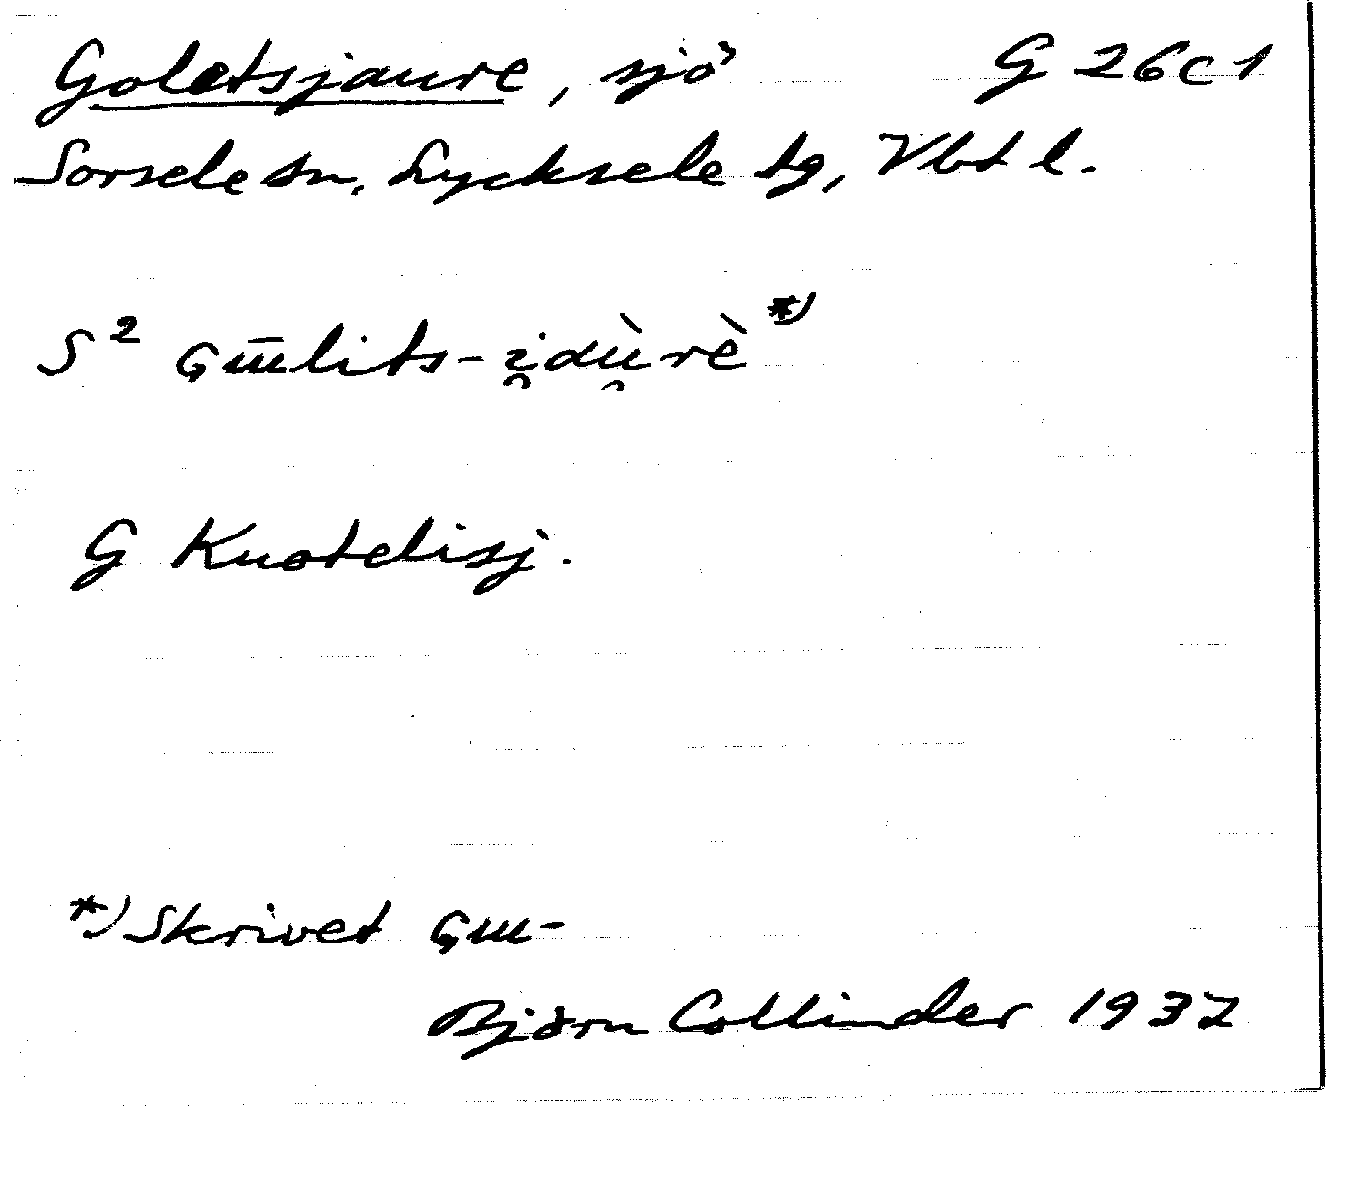 Goletsjaure, sjö G 26c1
Sorsele sn, Lycksele tg, Vbt l.
S² Gɯ̄lits-i̯dù̯rè *)
G Kuotelisj.
*) Skrivet Gɯ-
Björn Collinder 1937